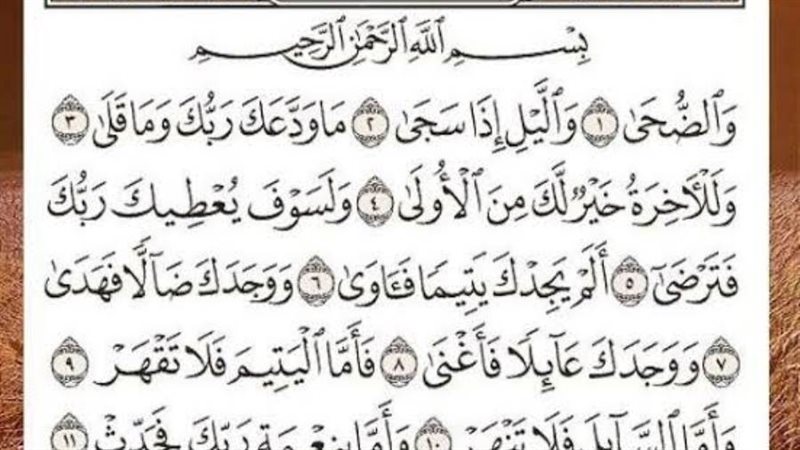 بِسْمِ ٱللَّهِ ٱلرَّحْمَٰنِ ٱلرَّحِيمِ
وَٱلضُّحَىٰ ١ وَٱلَّيْلِ إِذَا سَجَىٰ ٢ مَا وَدَّعَكَ رَبُّكَ وَمَا قَلَىٰ ٣
وَلَلْأَخِرَةُ خَيْرٌ لَّكَ مِنَ ٱلْأُولَىٰ ٤ وَلَسَوْفَ يُعْطِيكَ رَبُّكَ
فَتَرْضَىٰٓ ٥ أَلَمْ يَجِدْكَ يَتِيمًا فَـَٔاوَىٰ ٦ وَوَجَدَكَ ضَآلًّا فَهَدَىٰ
٧ وَوَجَدَكَ عَآئِلًا فَأَغْنَىٰ ٨ فَأَمَّا ٱلْيَتِيمَ فَلَا تَقْهَرْ ٩
وَأَمَّا ٱلسَّآئِلَ فَلَا تَنْهَرْ ١٠ وَأَمَّا بِنِعْمَةِ رَبِّكَ فَحَدِّثْ ١١